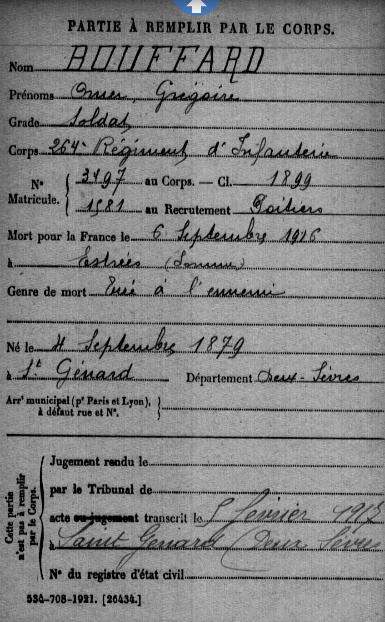 PARTIE À REMPLIR PAR LE CORPS.
Nom BOUFFARD
Prénoms Omer, Grégoire
Grade Soldat
Corps 264e Régiment d'Infanterie
N° Matricule. { 3497 au Corps. — Cl. 1899
1581 au Recrutement Poitiers
Mort pour la France le 6 Septembre 1916
à Estrées (Somme)
Genre de mort Tué à l'ennemi
Né le 4 Septembre 1879
à St Génard Département Deux-Sèvres
Arrt municipal (pr Paris et Lyon), à défaut rue et N°. {
Cette partie n'est pas à remplir par le Corps. {
Jugement rendu le
par le Tribunal de
acte ou jugement transcrit le 5 février 1917
à Saint Génard (Deux Sèvres
N° du registre d'état civil
534-708-1921. [26434.]